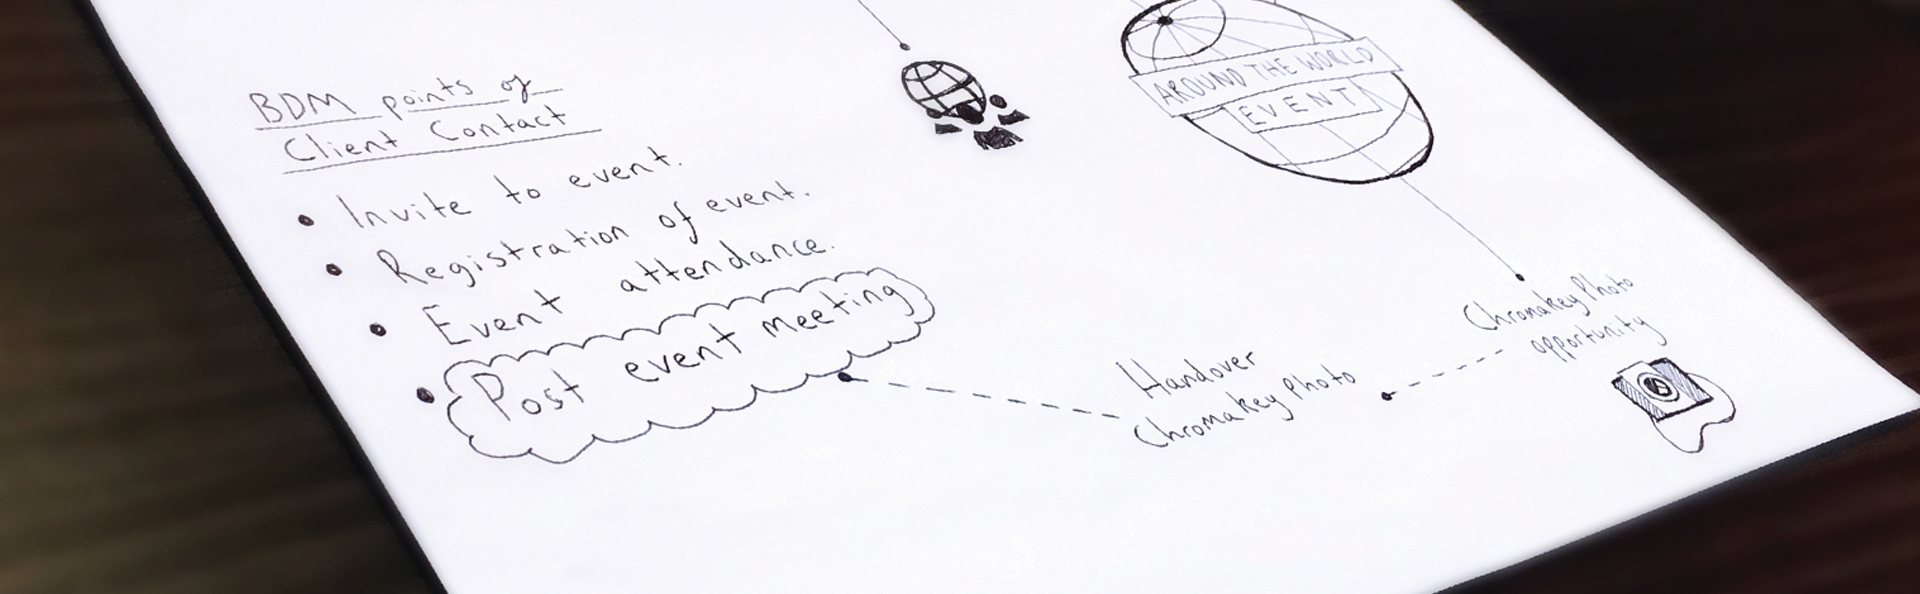 BDM points of
Client Contact
• Invite to event.
• Registration of event.
• Event attendance.
• Post event meeting
AROUND THE WORLD
EVENT
Chromakey Photo
opportunity
Handover
Chromakey Photo